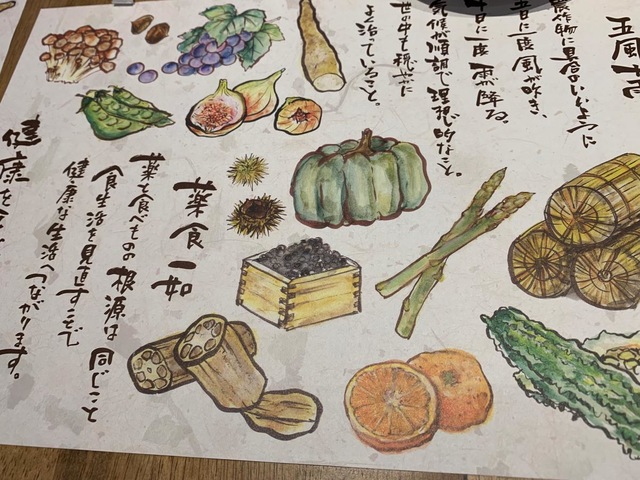 五風十
農作物に具合のいいように
五日に一度風が吹き、
十日に一度雨が降る。
気候が順調で理想的なこと。
世の中も穏やかに
よく治っていること。
薬食一如
薬も食べものの根源は同じこと
食生活を見直すことで
健康な生活へつながります。
健康を